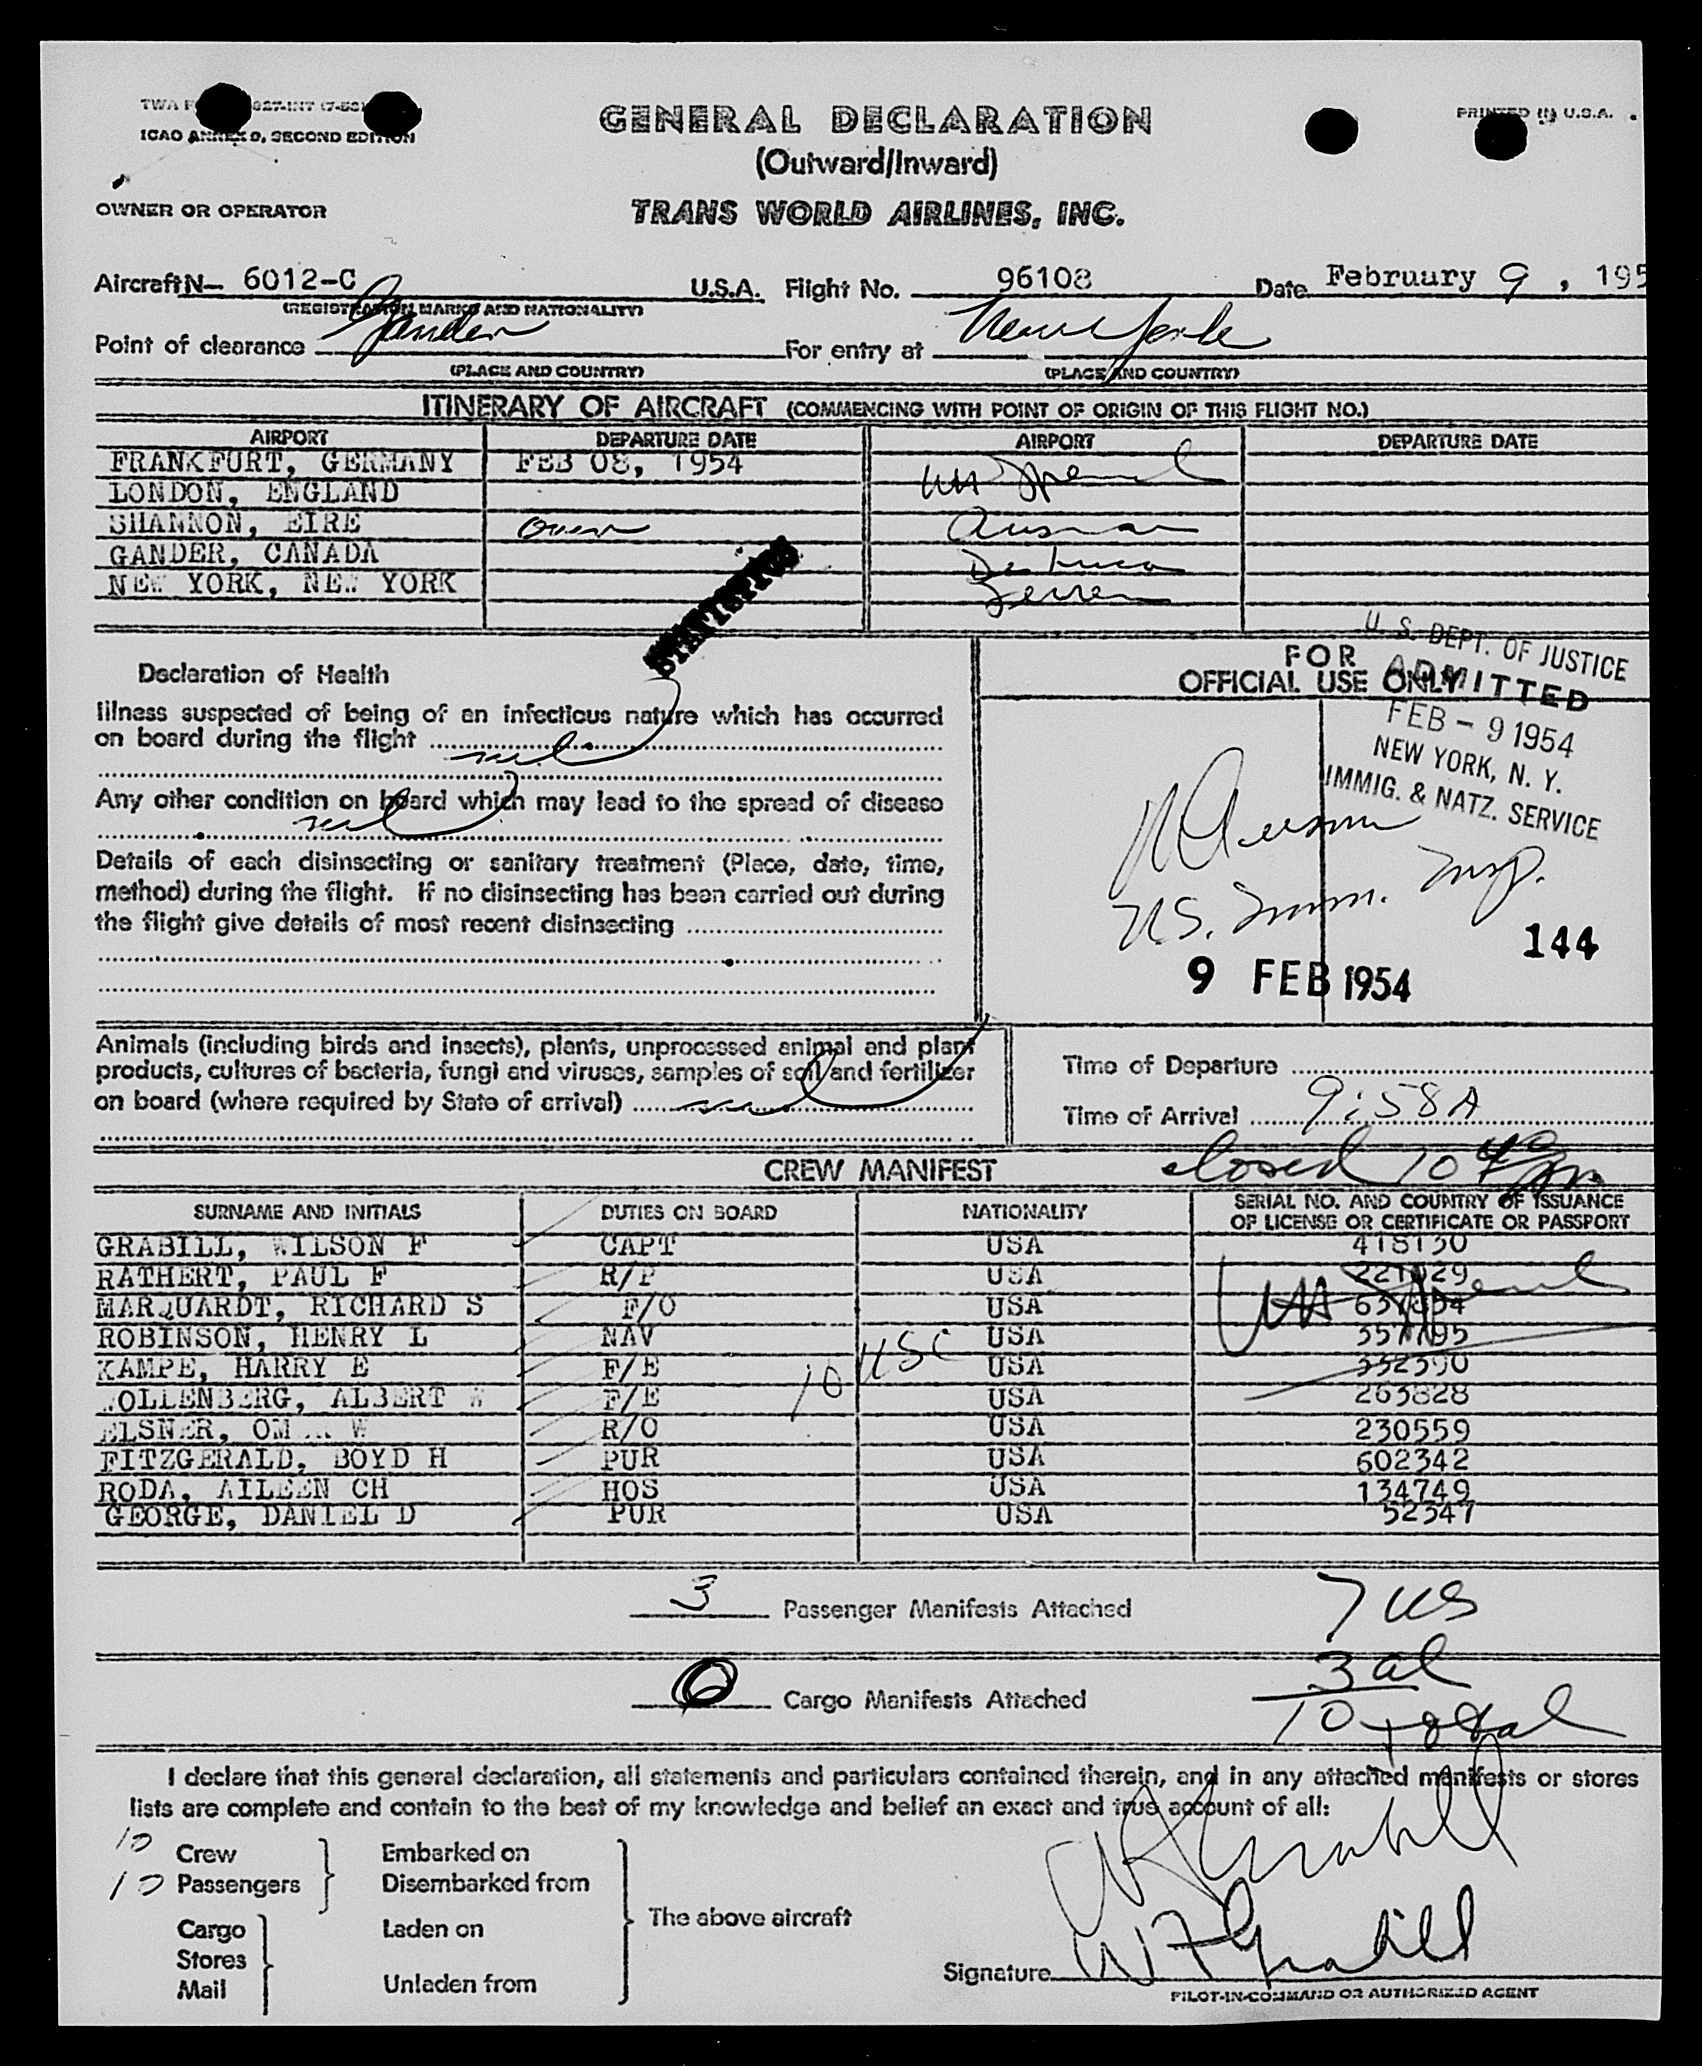 GENERAL DECLARATION
ICAO ANNEX 9, SECOND EDITION
PRINTED IN U.S.A.
(Outward/Inward)
OWNER OR OPERATOR
TRANS WORLD AIRLINES, INC.
Aircraft N— 6012-C U.S.A. Flight No. 96108 Date February 9, 195
(REGISTRATION MARKS AND NATIONALITY)
Point of clearance Gander For entry at New York
(PLACE AND COUNTRY) (PLACE AND COUNTRY)
ITINERARY OF AIRCRAFT (COMMENCING WITH POINT OF ORIGIN OF THIS FLIGHT NO.)
AIRPORT DEPARTURE DATE AIRPORT DEPARTURE DATE
FRANKFURT, GERMANY FEB 08, 1954
LONDON, ENGLAND
SHANNON, EIRE
GANDER, CANADA
NEW YORK, NEW YORK
STATISTICS
Declaration of Health
Illness suspected of being of an infectious nature which has occurred
on board during the flight nil
Any other condition on board which may lead to the spread of disease
nil
Details of each disinsecting or sanitary treatment (Place, date, time,
method) during the flight. If no disinsecting has been carried out during
the flight give details of most recent disinsecting
FOR
OFFICIAL USE ONLY
U. S. DEPT. OF JUSTICE
ADMITTED
FEB - 9 1954
NEW YORK, N. Y.
IMMIG. & NATZ. SERVICE
US. Imm. Insp.
144
9 FEB 1954
Animals (including birds and insects), plants, unprocessed animal and plant
products, cultures of bacteria, fungi and viruses, samples of soil and fertilizer
on board (where required by State of arrival) nil
Time of Departure
Time of Arrival 9:58A
closed 10
CREW MANIFEST
SURNAME AND INITIALS DUTIES ON BOARD NATIONALITY SERIAL NO. AND COUNTRY OF ISSUANCE
OF LICENSE OR CERTIFICATE OR PASSPORT
GRABILL, WILSON F CAPT USA 418130
RATHERT, PAUL F R/P USA
MARQUARDT, RICHARD S F/O USA
ROBINSON, HENRY L NAV USA
KAMPE, HARRY E F/E USA 332390
OLLENBERG, ALBERT W F/E USA 263828
ELSNER, W R/O USA 230559
FITZGERALD, BOYD H PUR USA 602342
RODA, AILEEN CH HOS USA 134749
GEORGE, DANIEL D PUR USA 52347
10 USC
3 Passenger Manifests Attached
7 US
3 al
0 Cargo Manifests Attached
10 total
I declare that this general declaration, all statements and particulars contained therein, and in any attached manifests or stores
lists are complete and contain to the best of my knowledge and belief an exact and true account of all:
10 Crew Embarked on
10 Passengers Disembarked from
The above aircraft
Cargo Laden on
Stores
Mail Unladen from
Signature WF Grabill
PILOT-IN-COMMAND OR AUTHORIZED AGENT